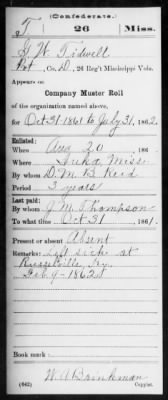 (Confederate.)
T 26 Miss.
G W Tidwell
Pvt, Co. D, 26 Reg't Mississippi Vols.
Appears on
Company Muster Roll
of the organization named above,
for Oct 31 1861 to July 31, 1862.
Enlisted:
When Aug 20, 186
Where Iuka, Miss
By whom D. M. B. Reid
Period 3 years
Last paid:
By whom J. M. Thompson
To what time Oct 31, 1861.
Present or absent Absent
Remarks: Left sick at
Russelville Ky.
Feb 9 - 1862
W A Brinkman
(642) Copyist.